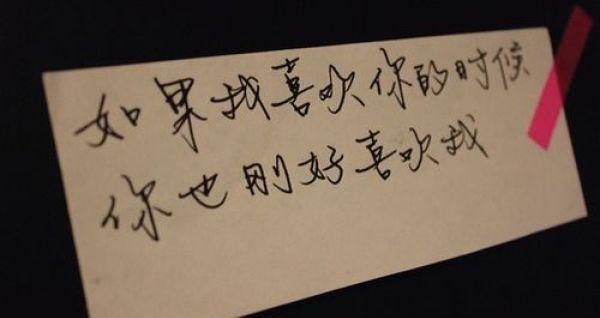 如果我喜欢你的时候
你也刚好喜欢我